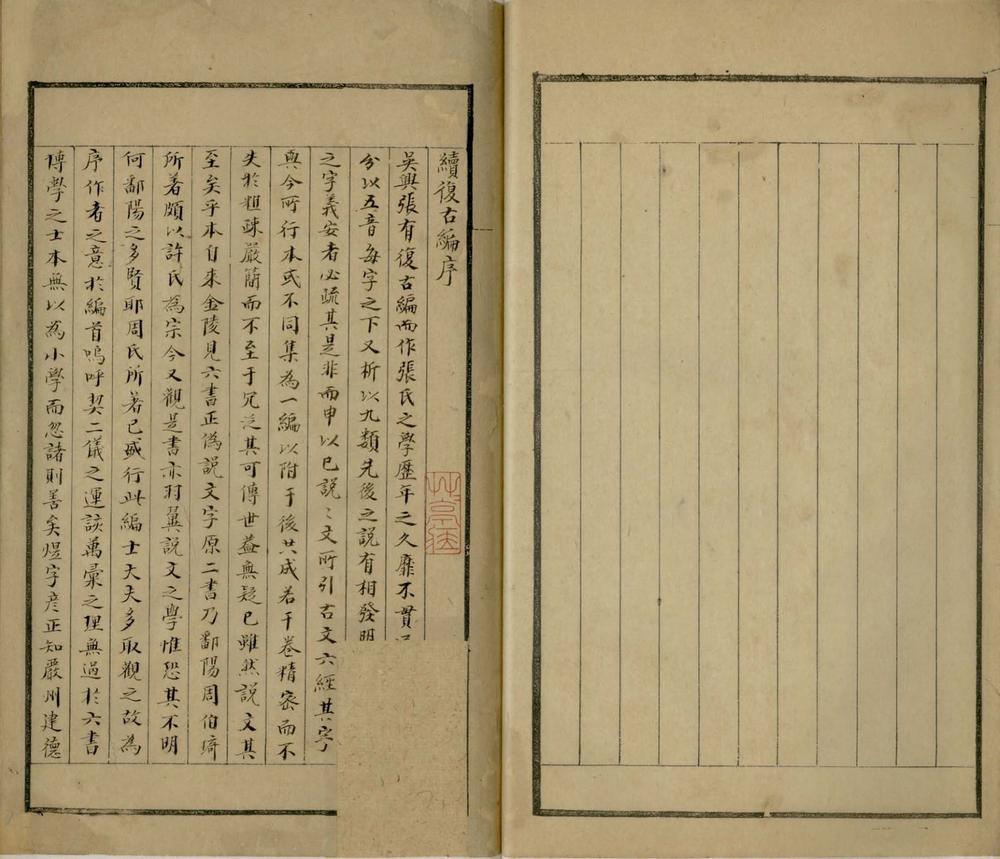 續復古編序
吳興張有復古編而作張氏之學歷年之久靡不貫
分以五音每字之下又析以九類先後之說有相發明
之字義安者必疏其是非而申以已說〻文所引古文六經其字
與今所行本或不同集為一編以附于後共成若干卷精密而不
失於粗疎嚴簡而不至于冗泛其可傳世益無疑已雖然說文其
至矣乎本自来金陵見六書正偽說文字原二書乃鄱陽周伯琦
所著頗以許氏為宗今又觀是書亦羽翼說文之學惟恐其不明
何鄱陽之多賢耶周氏所著已盛行此編士大夫多取觀之故為
序作者之意於編首嗚呼契二儀之運該萬彙之理無過於六書
博學之士本無以為小學而忽諸則善矣煜字彦正知嚴州建德